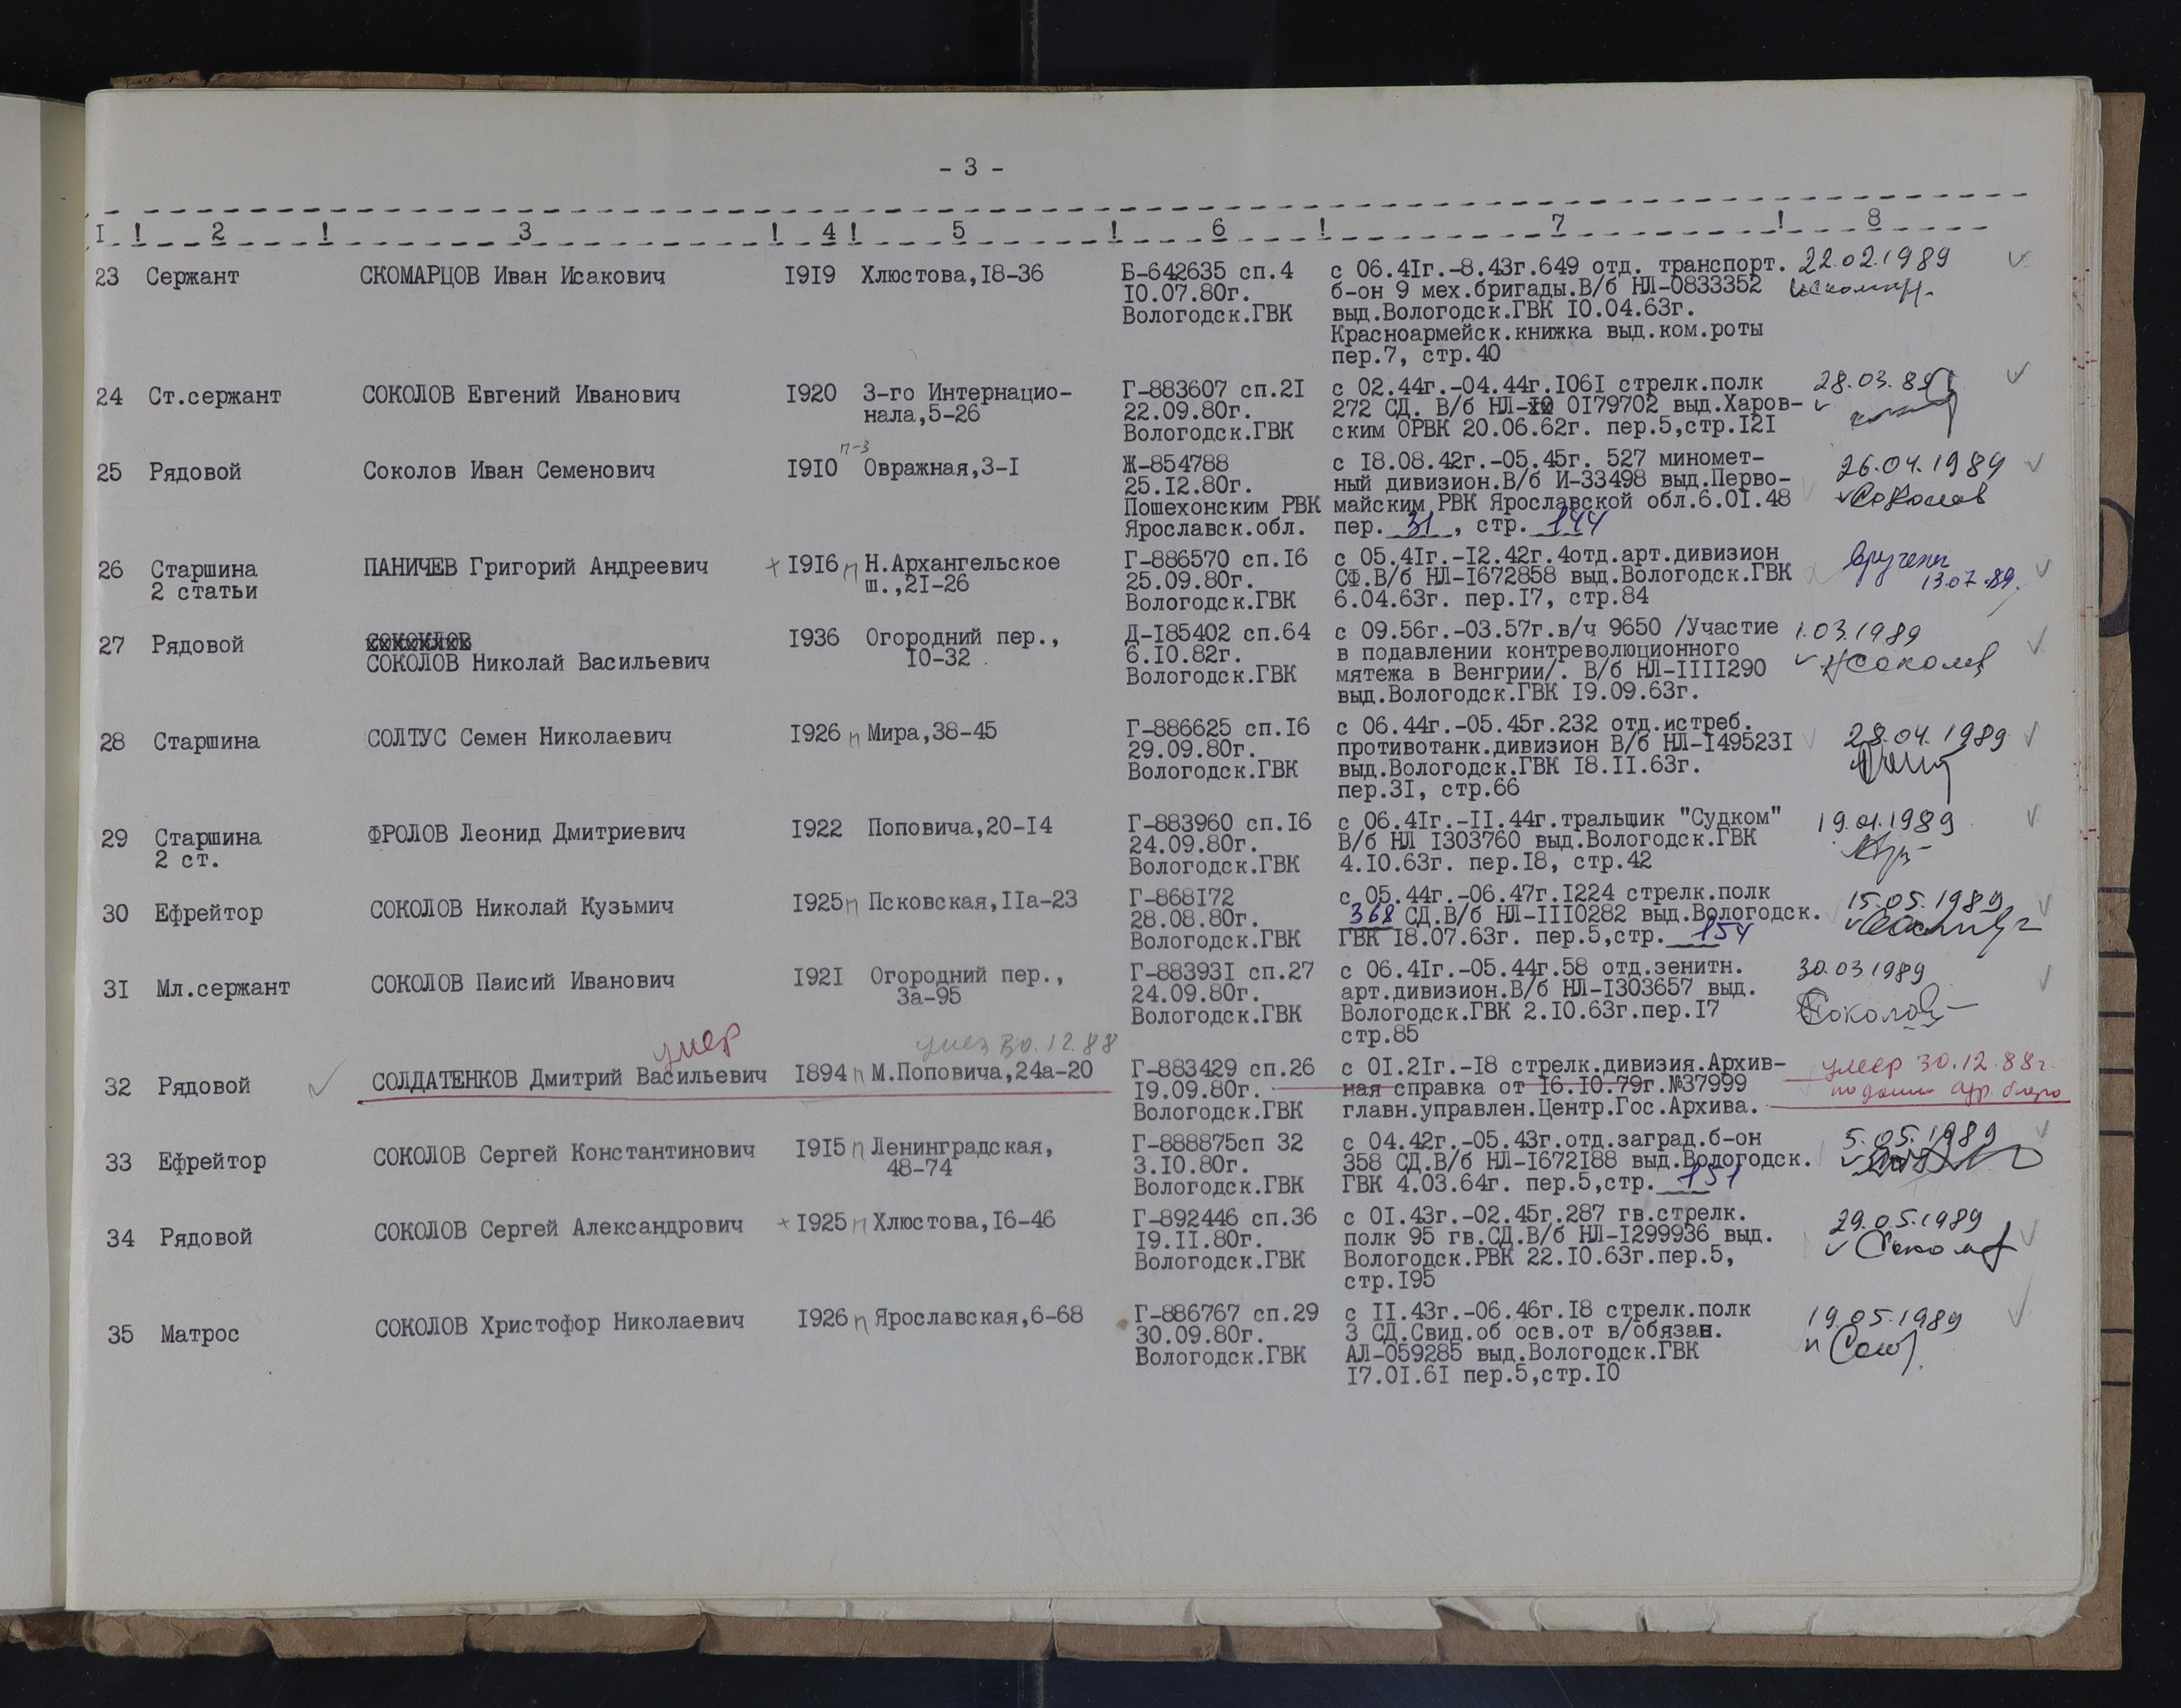 - 3 -
I ! 2 ! 3 ! 4 ! 5 ! 6 ! 7 ! 8
23 Сержант СКОМАРЦОВ Иван Исакович 1919 Хлюстова,18-36 Б-642635 сп.4 с 06.41г.-8.43г.649 отд. транспорт. 22.02.1989
10.07.80г. б-он 9 мех.бригады.В/б НЛ-0833352
Вологодск.ГВК выд.Вологодск.ГВК 10.04.63г.
Красноармейск.книжка выд.ком.роты
пер.7, стр.40
24 Ст.сержант СОКОЛОВ Евгений Иванович 1920 3-го Интернацио- Г-883607 сп.21 с 02.44г.-04.44г.1061 стрелк.полк 28.03.89
нала,5-26 22.09.80г. 272 СД. В/б НЛ- 0179702 выд.Харов-
Вологодск.ГВК ским ОРВК 20.06.62г. пер.5,стр.121
п-3
25 Рядовой Соколов Иван Семенович 1910 Овражная,3-1 Ж-854788 с 18.08.42г.-05.45г. 527 миномет- 26.04.1989
25.12.80г. ный дивизион.В/б И-33498 выд.Перво- Соколов
Пошехонским РВК майским РВК Ярославской обл.6.01.48
Ярославск.обл. пер. 31, стр. 144
26 Старшина ПАНИЧЕВ Григорий Андреевич + 1916 п Н.Архангельское Г-886570 сп.16 с 05.41г.-12.42г.4отд.арт.дивизион вручены
2 статьи ш.,21-26 25.09.80г. СФ.В/б НЛ-1672858 выд.Вологодск.ГВК 13.07.89.
Вологодск.ГВК 6.04.63г. пер.17, стр.84
27 Рядовой 1936 Огородний пер., Д-185402 сп.64 с 09.56г.-03.57г.в/ч 9650 /Участие 1.03.1989
СОКОЛОВ Николай Васильевич 10-32 6.10.82г. в подавлении контреволюционного НСоколов
Вологодск.ГВК мятежа в Венгрии/. В/б НЛ-1111290
выд.Вологодск.ГВК 19.09.63г.
28 Старшина СОЛТУС Семен Николаевич 1926 п Мира,38-45 Г-886625 сп.16 с 06.44г.-05.45г.232 отд.истреб. 28.04.1989
29.09.80г. противотанк.дивизион В/б НЛ-1495231
Вологодск.ГВК выд.Вологодск.ГВК 18.11.63г.
пер.31, стр.66
29 Старшина ФРОЛОВ Леонид Дмитриевич 1922 Поповича,20-14 Г-883960 сп.16 с 06.41г.-11.44г.тральщик "Судком" 19.01.1989
2 ст. 24.09.80г. В/б НЛ 1303760 выд.Вологодск.ГВК
Вологодск.ГВК 4.10.63г. пер.18, стр.42
30 Ефрейтор СОКОЛОВ Николай Кузьмич 1925 п Псковская,11а-23 Г-868172 с 05.44г.-06.47г.1224 стрелк.полк 15.05.1989
28.08.80г. 368 СД.В/б НЛ-1110282 выд.Вологодск.
Вологодск.ГВК ГВК 18.07.63г. пер.5,стр. 154
31 Мл.сержант СОКОЛОВ Паисий Иванович 1921 Огородний пер., Г-883931 сп.27 с 06.41г.-05.44г.58 отд.зенитн. 30.03.1989
3а-95 24.09.80г. арт.дивизион.В/б НЛ-1303657 выд.
Вологодск.ГВК Вологодск.ГВК 2.10.63г.пер.17 Соколов
стр.85
умер умер 30.12.88
32 Рядовой СОЛДАТЕНКОВ Дмитрий Васильевич 1894 п М.Поповича,24а-20 Г-883429 сп.26 с 01.21г.-18 стрелк.дивизия.Архив- умер 30.12.88г.
19.09.80г. ная справка от 16.10.79г.№37999 по данн адр. бюро
Вологодск.ГВК главн.управлен.Центр.Гос.Архива.
33 Ефрейтор СОКОЛОВ Сергей Константинович 1915 п Ленинградская, Г-888875сп 32 с 04.42г.-05.43г.отд.заград.б-он 5.05.1989
48-74 3.10.80г. 358 СД.В/б НЛ-1672188 выд.Вологодск.
Вологодск.ГВК ГВК 4.03.64г. пер.5,стр. 151
34 Рядовой СОКОЛОВ Сергей Александрович + 1925 п Хлюстова,16-46 Г-892446 сп.36 с 01.43г.-02.45г.287 гв.стрелк. 29.05.1989
19.11.80г. полк 95 гв.СД.В/б НЛ-1299936 выд.
Вологодск.ГВК Вологодск.РВК 22.10.63г.пер.5,
стр.195
35 Матрос СОКОЛОВ Христофор Николаевич 1926 п Ярославская,6-68 Г-886767 сп.29 с 11.43г.-06.46г.18 стрелк.полк 19.05.1989
30.09.80г. 3 СД.Свид.об осв.от в/обязан.
Вологодск.ГВК АЛ-059285 выд.Вологодск.ГВК
17.01.61 пер.5,стр.10